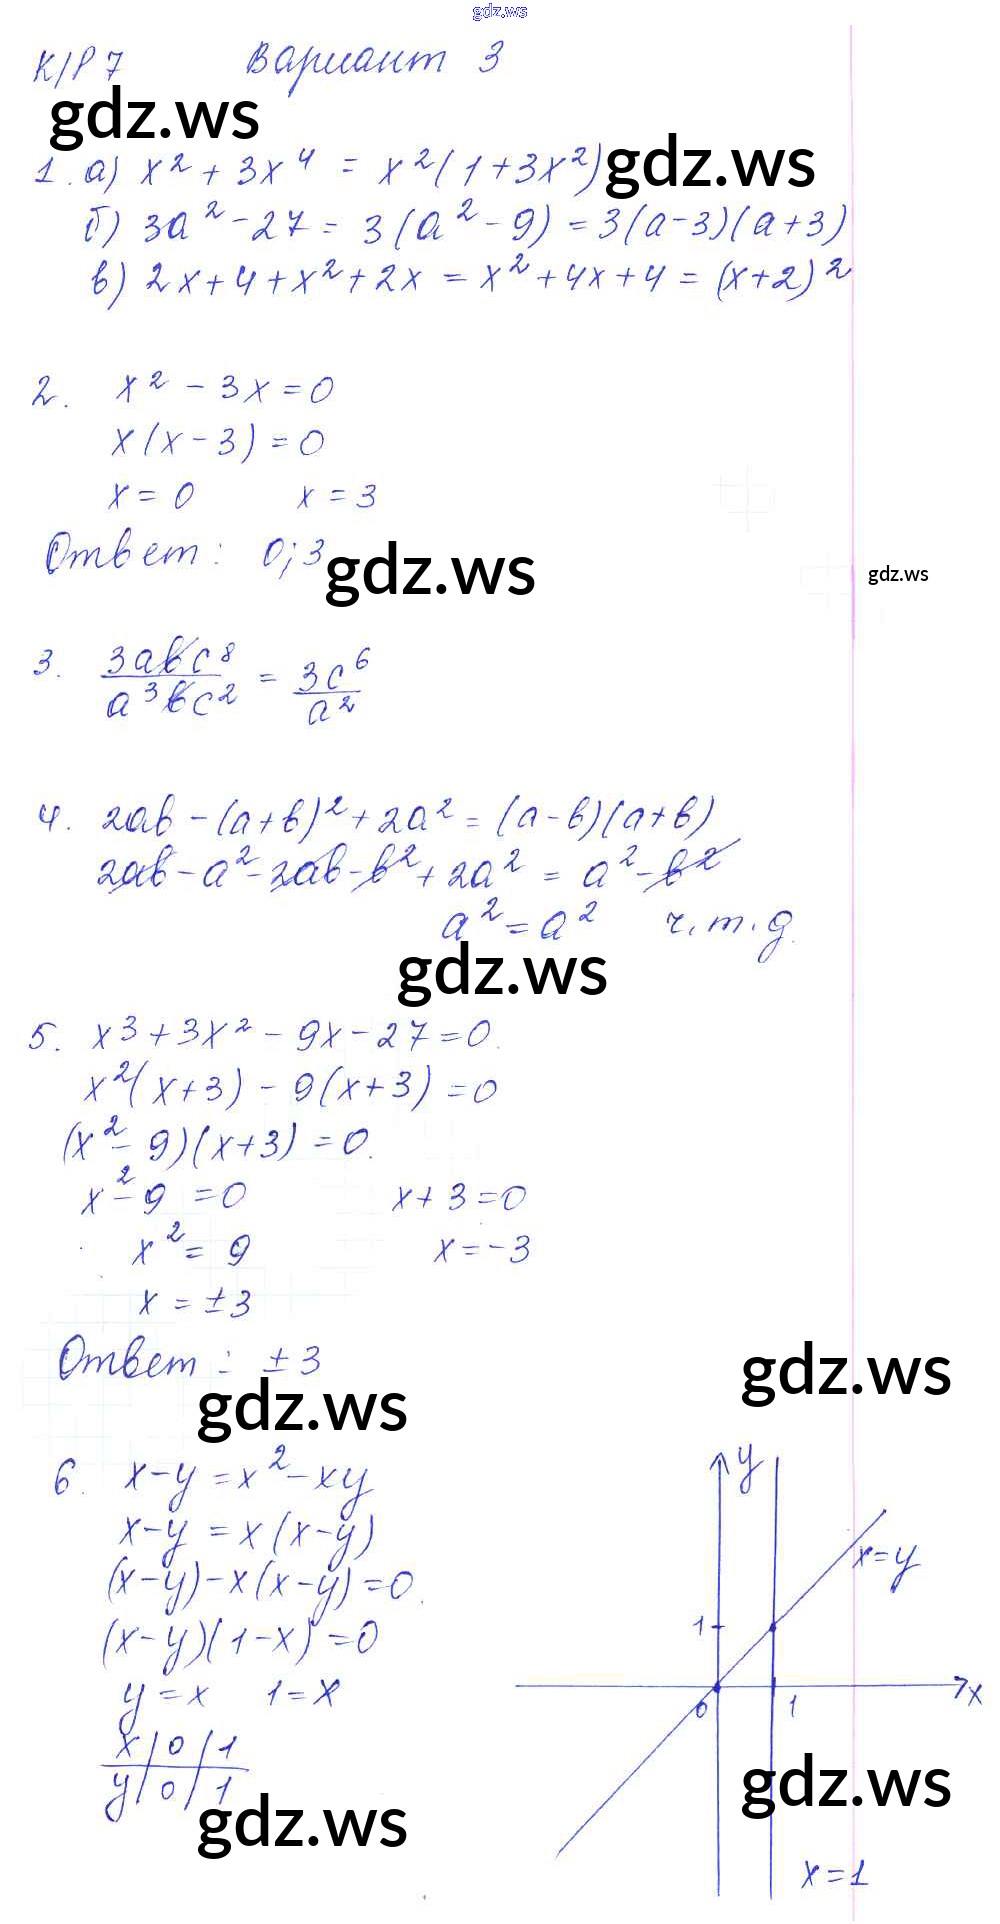 gdz.ws
К/Р 7 Вариант 3
gdz.ws
1. а) x² + 3x⁴ = x²(1+3x²) gdz.ws
б) 3a² - 27 = 3(a² - 9) = 3(a-3)(a+3)
в) 2x+4+x²+2x = x²+4x+4 = (x+2)²
2. x² - 3x = 0
x(x-3) = 0
x = 0 x = 3
Ответ: 0; 3
gdz.ws
gdz.ws
3. 3abc⁸/a³bc² = 3c⁶/a²
4. 2ab - (a+b)² + 2a² = (a-b)(a+b)
2ab - a² - 2ab - b² + 2a² = a² - b²
a² = a² ч.т.д.
gdz.ws
5. x³ + 3x² - 9x - 27 = 0.
x²(x+3) - 9(x+3) = 0
(x² - 9)(x+3) = 0.
x² - 9 = 0 x + 3 = 0
x² = 9 x = -3
x = ±3
Ответ: ±3
gdz.ws
gdz.ws
6. x - y = x² - xy
x - y = x(x-y)
(x-y) - x(x-y) = 0.
(x-y)(1-x) = 0
y = x 1 = x
x | 0 | 1
y | 0 | 1
gdz.ws
y
x=y
1
0 1 x
gdz.ws
x = 1